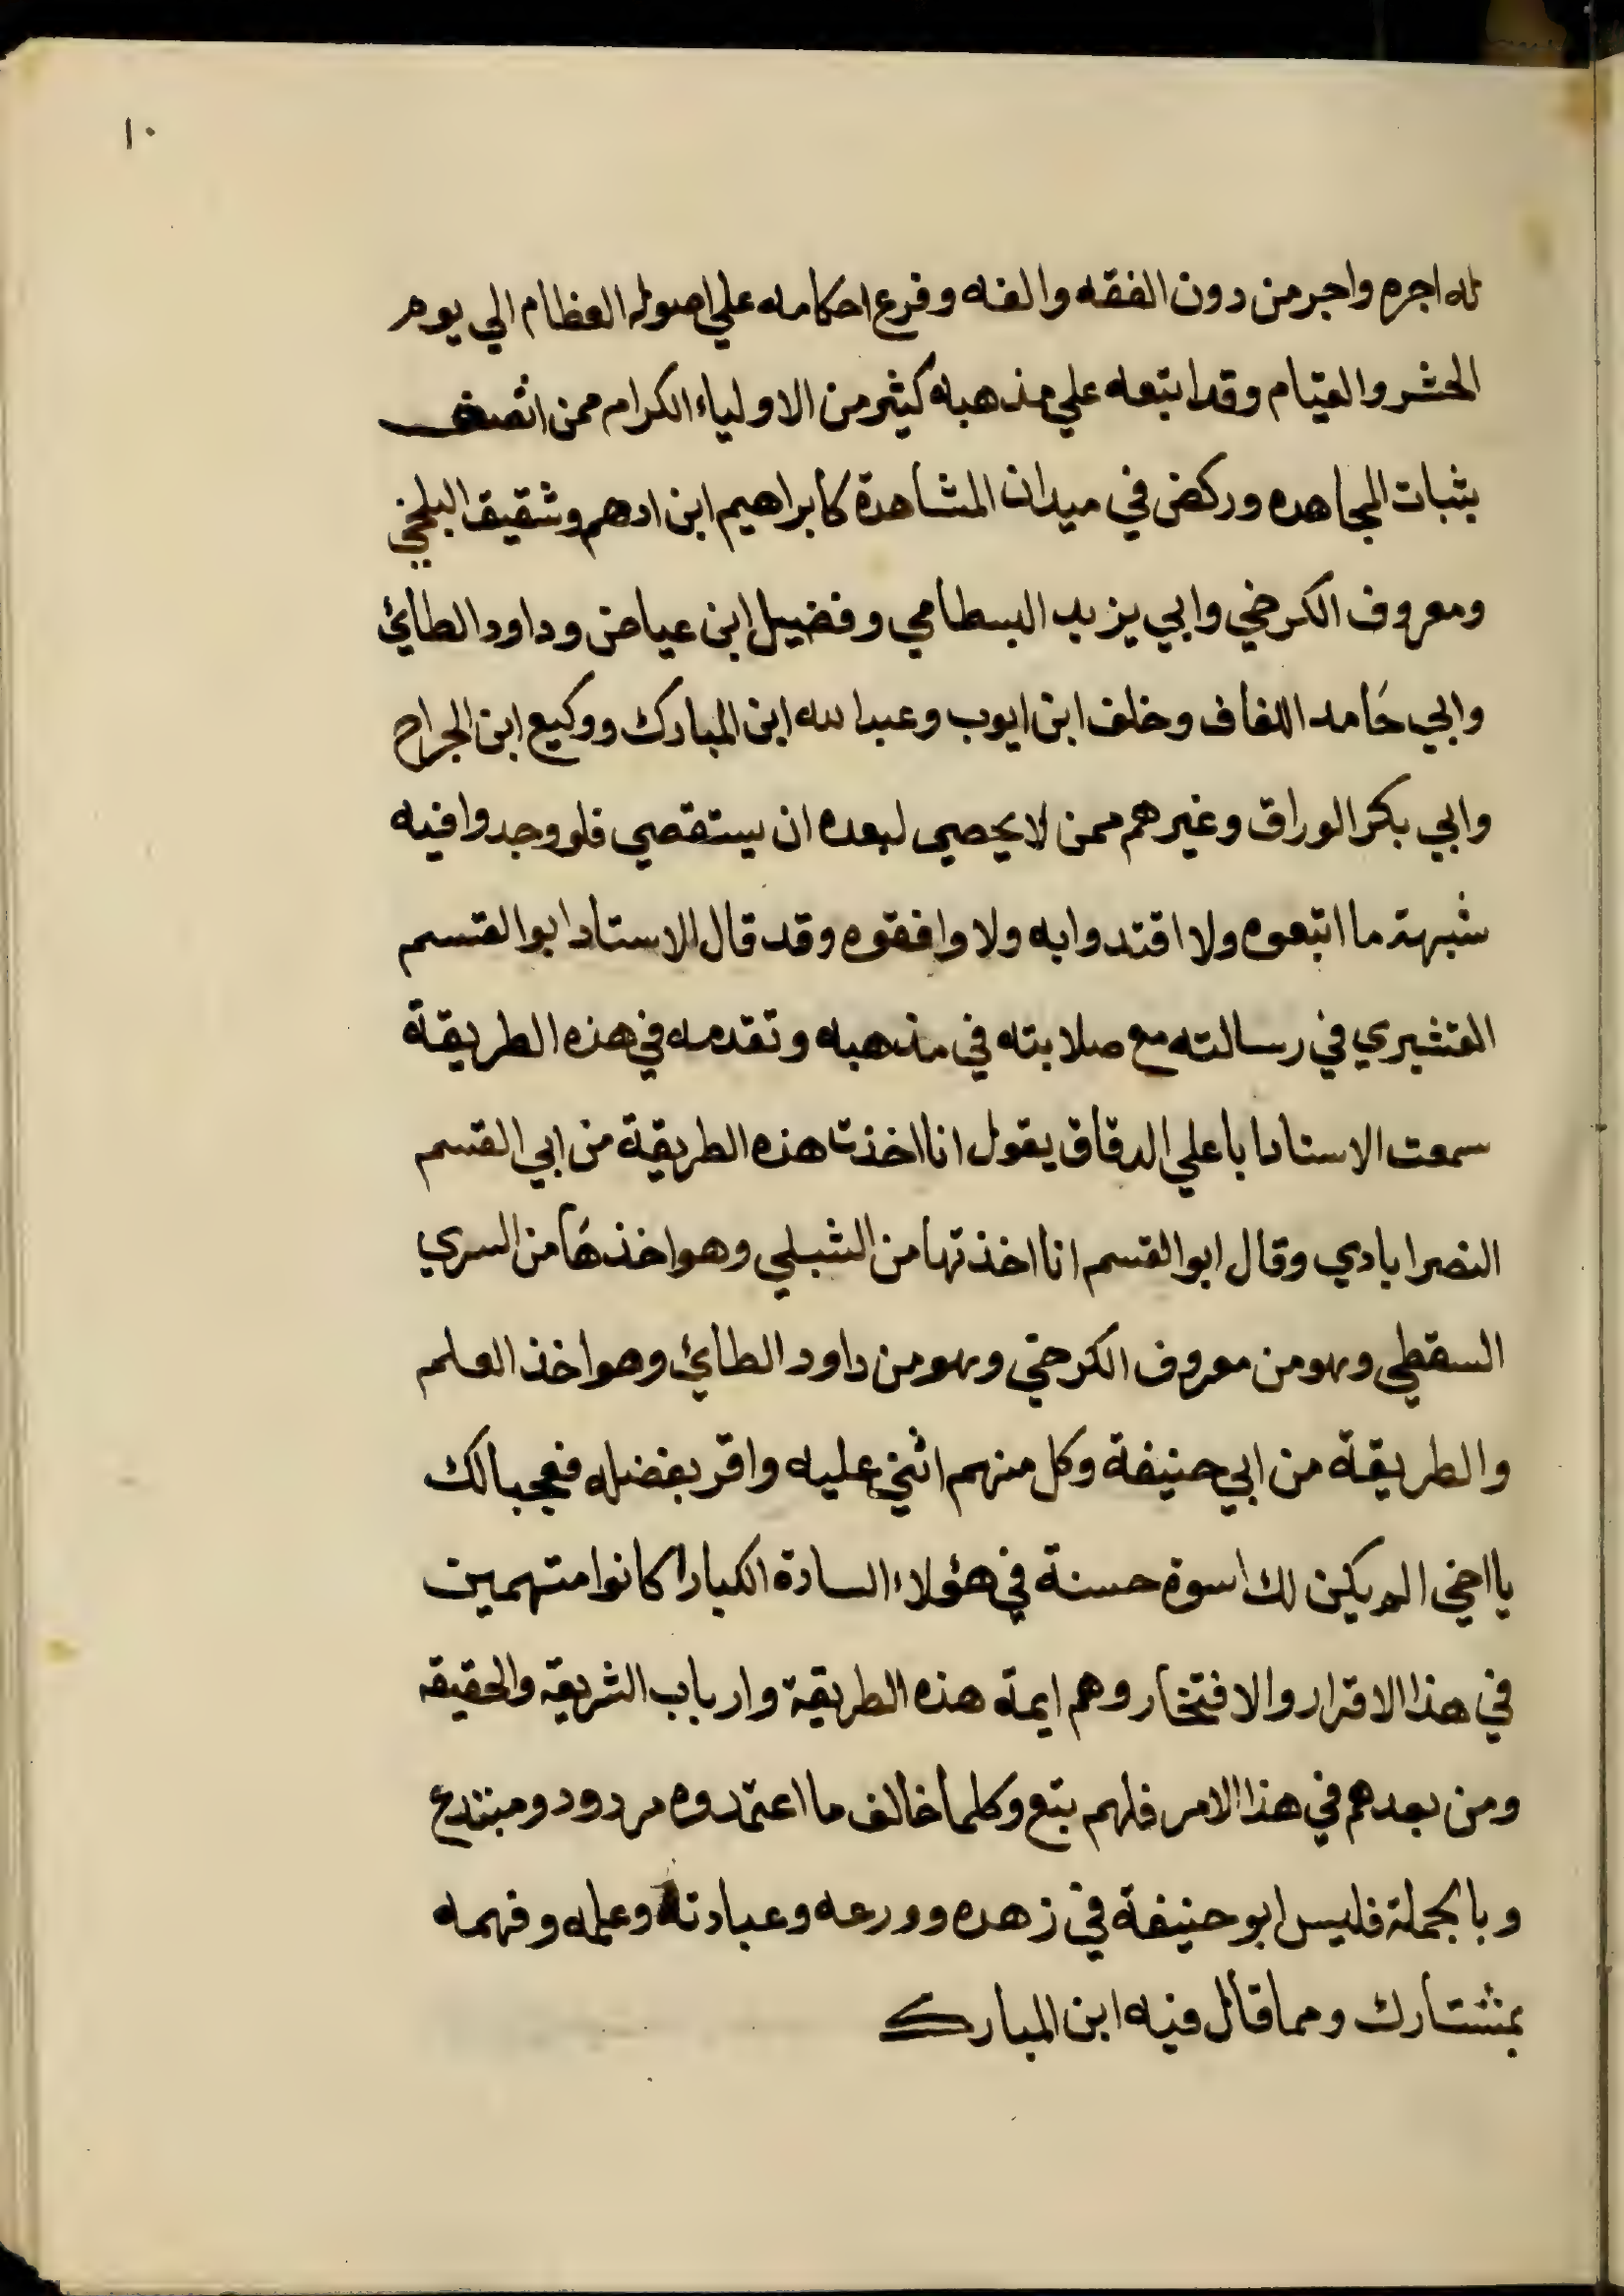 ١٠
له اجره واجر من دون الفقه والفه وفرع احكامه علي اصوله العظام الي يوم
الحشر والقيام وقد اتبعه علي مذهبه كثير من الاولياء الكرام ممن اتصف
بثبات المجاهده وركض في ميدان المشاهدة كابراهيم ابن ادهم وشقيق البلخي
ومعروف الكرخي وابي يزيد البسطامي وفضيل ابن عياض وداود الطائي
وابي حَامد اللفاف وخلف ابن ايوب وعبد الله ابن المبارك ووكيع ابن الجراح
وابي بكر الوراق وغيرهم ممن لا يحصي لبعده ان يستقصي فلو وجدوا فيه
شبهة ما اتبعوه ولا اقتدوا به ولا وافقوه وقد قال الاستاد ابو القسم
القشيري في رسالته مع صلابته في مذهبه وتقدمه في هذه الطريقة
سمعت الاستاد ابا علي الدقاق يقول انا اخذت هذه الطريقة من ابي القسم
النصرابادي وقال ابو القسم انا اخذتها من الشبلي وهو اخذهَا من السري
السقطي وهو من معروف الكرخي وهو من داود الطائي وهو اخذ العلم
والطريقة من ابي حنيفة وكل منهم اثني عليه واقر بفضله فعجبا لك
يا اخي الم يكن لك اسوة حسنة في هؤلاء السادة الكبار اكانوا متهمين
في هذا الاقرار والافتخار وهم ايمة هذه الطريقة وارباب الشريعة والحقيقة
ومن بعدهم في هذا الامر فلهم بتع وكلما خالف ما اعتمدوه مردود ومبتدع
وبالجملة فليس ابو حنيفة في زهده وورعه وعبادته وعلمه وفهمه
بمشتارك ومما قال فيه ابن المبارك